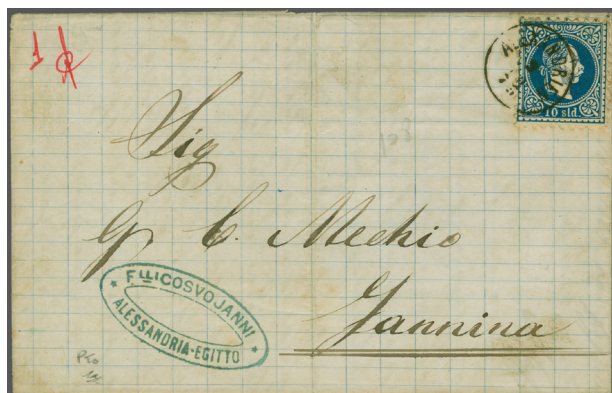 1
10 sld.
Sig
G. C. Mechio
Jannina
* FLLI COSVOJANNI *
ALESSANDRIA-EGITTO